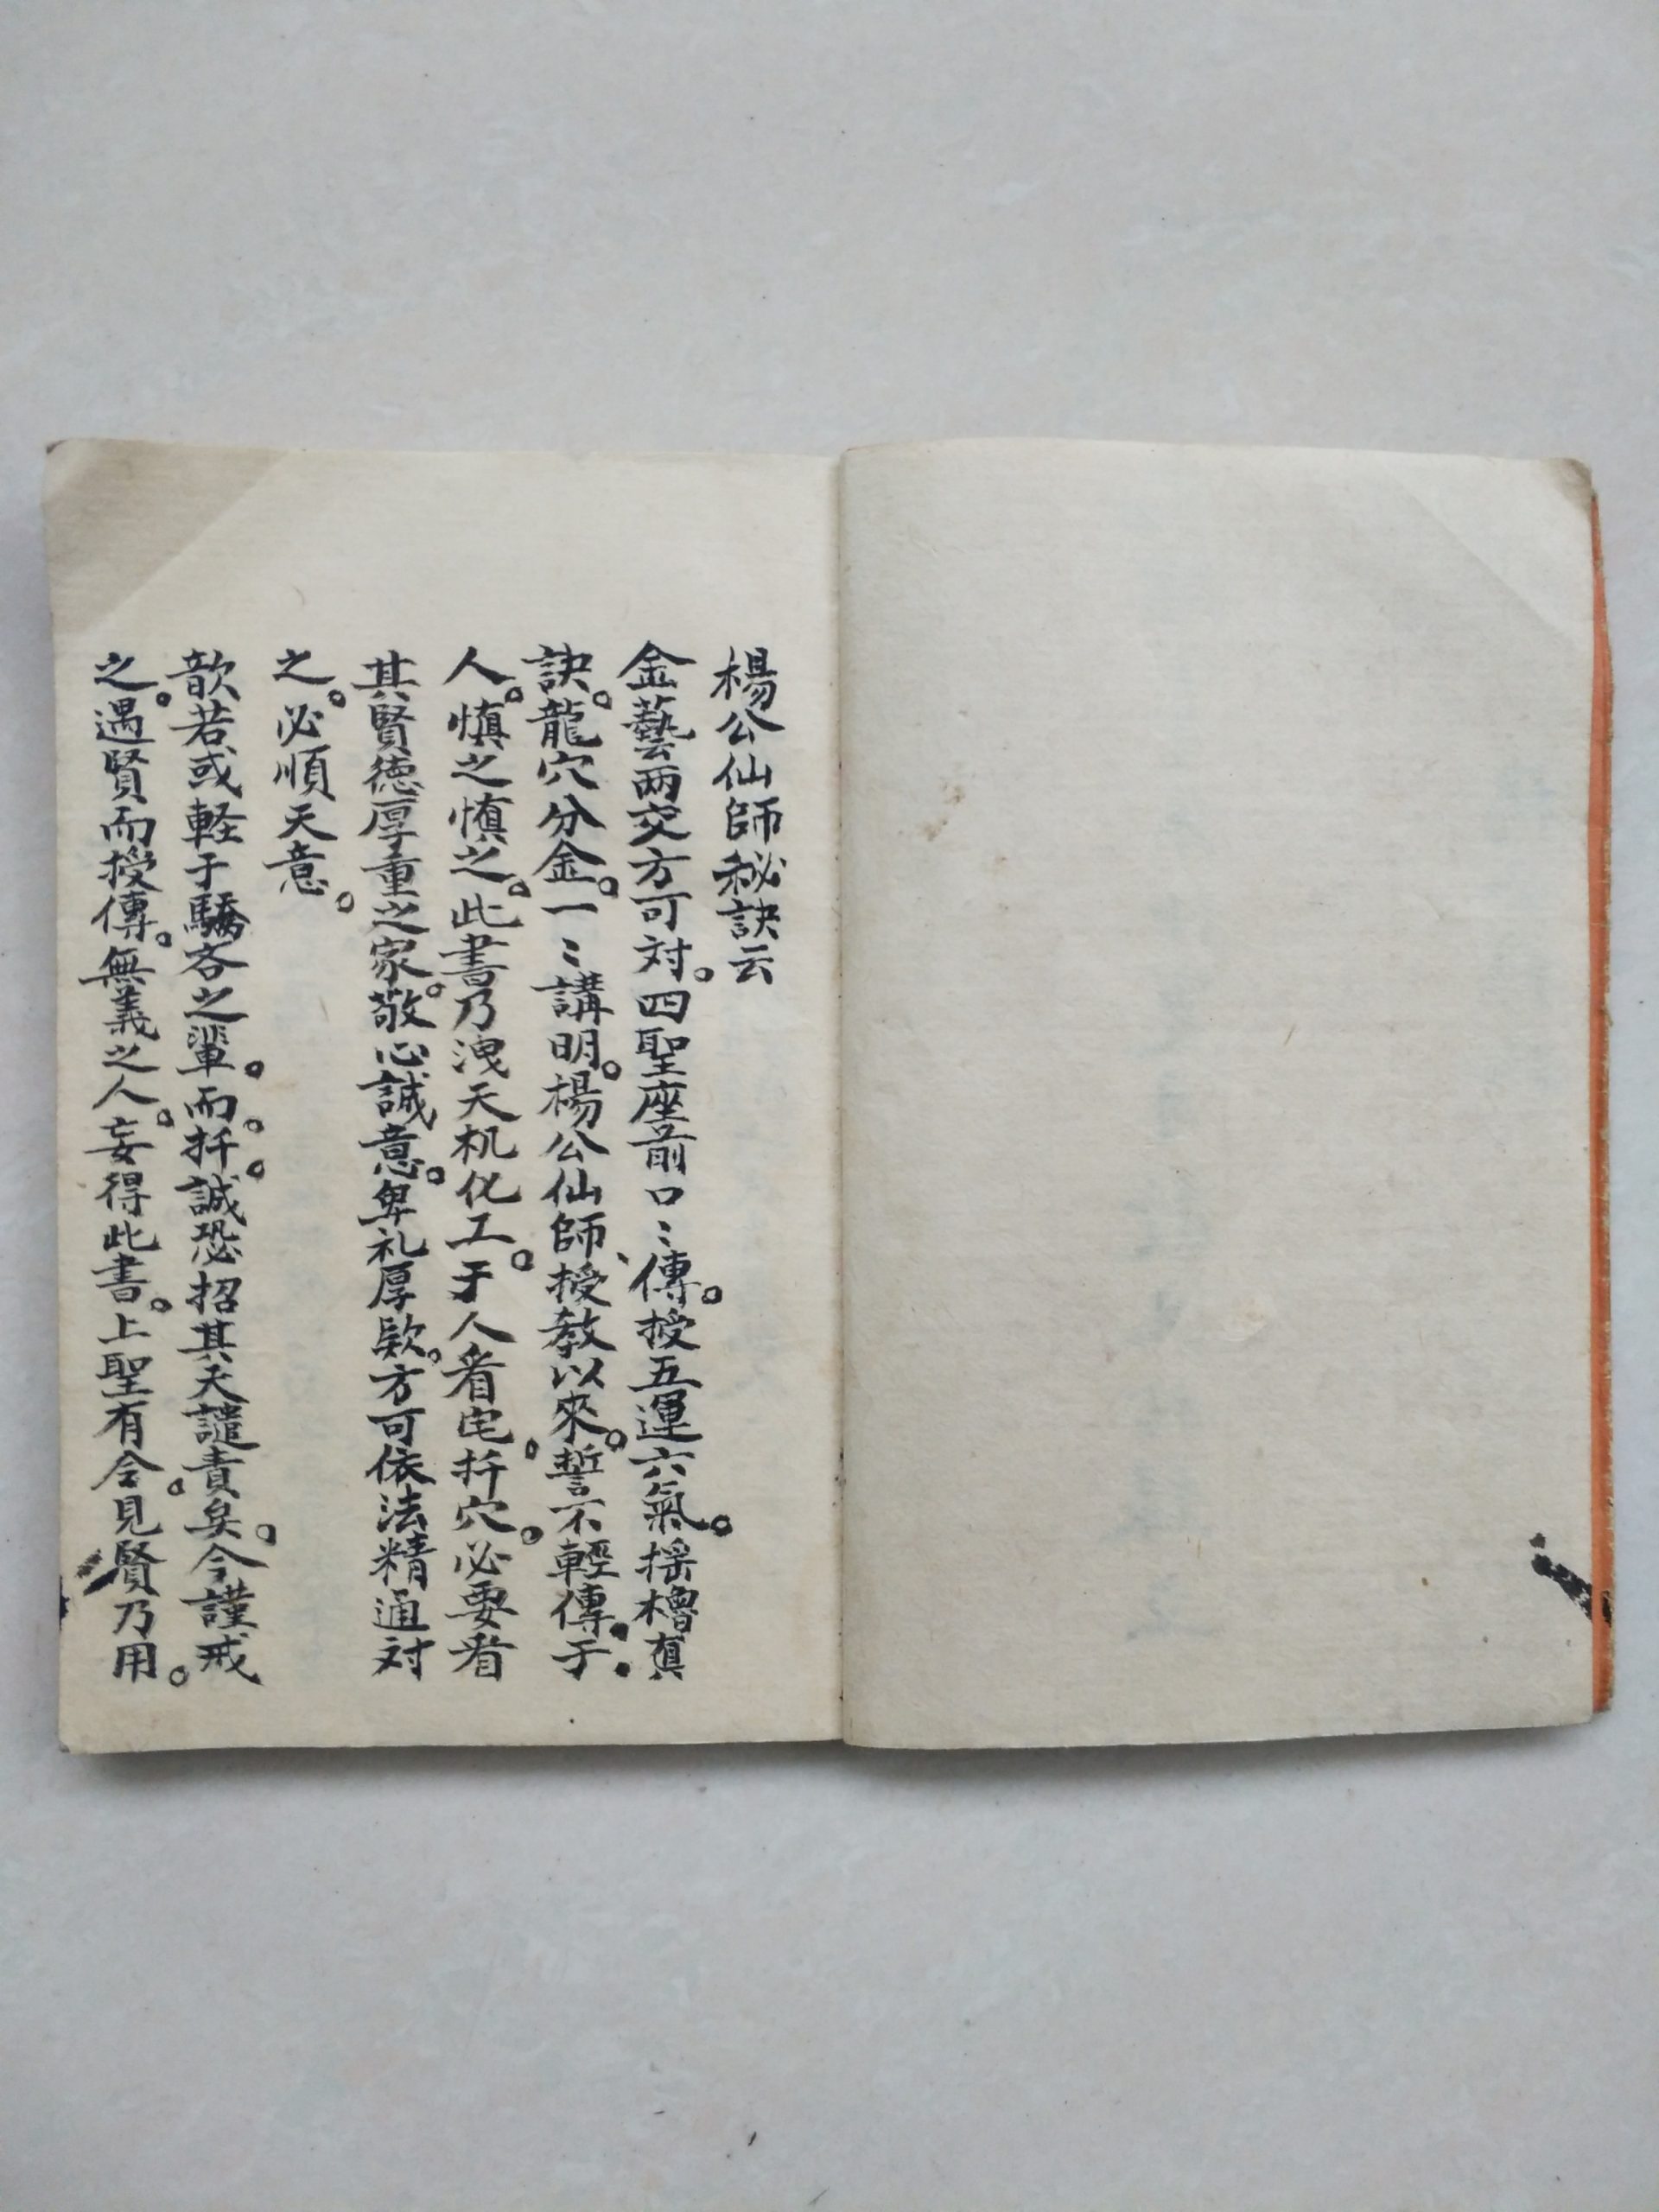 楊公仙師秘訣云
金藝两交方可対。四聖座前口〻傳。授五運六氣。摇櫓真
訣。龍穴分金。一〻講明。楊公仙師、授教以來。誓不輕傳于
人。慎之慎之。此書乃洩天机化工。于人看宅。扦穴。必要看
其賢徳厚重之家。敬心誠意。卑礼厚欵。方可依法精通対
之。必順天意。
歆若或軽于驕吝之輩。而。扦。誠恐招其天譴責矣。今謹戒
之。遇賢而授傳。無義之人。妄得此書。上聖有令。見賢乃用。